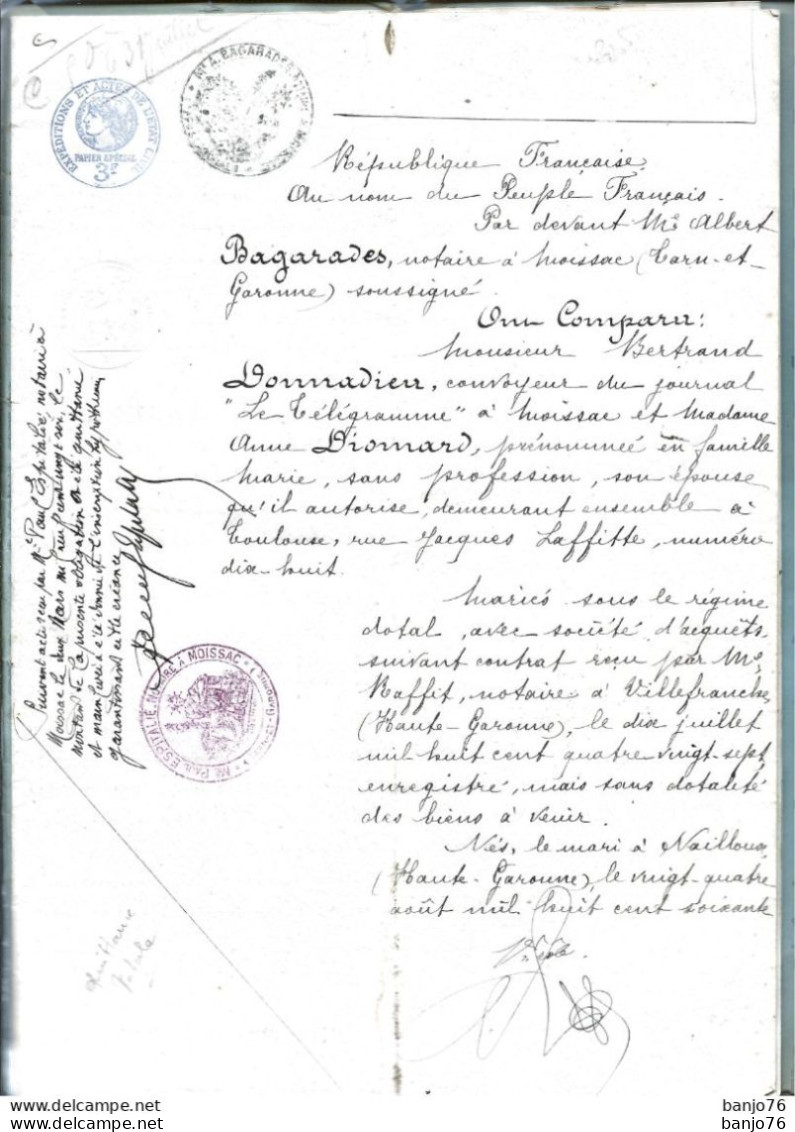 EXPÉDITIONS ET ACTES DE L'ETAT CIVIL
PAPIER SPÉCIAL
3F
République Française
Au nom du Peuple Français.
Par devant Me Albert
Bagarades, notaire à Moissac (Tarn-et-
Garonne) soussigné.
Ont Comparu:
Monsieur Bertrand
Donnadieu, convoyeur du journal
"Le Télégramme" à Moissac et Madame
Anne Diomard, prénommée en famille
Marie, sans profession, son épouse
qu'il autorise, demeurant ensemble à
Toulouse, rue Jacques Laffitte, numéro
dix-huit.
Mariés sous le régime
dotal, avec société d'acquêts
suivant contrat reçu par Me
Raffit, notaire à Villefranche
(Haute-Garonne), le dix juillet
mil huit cent quatre vingt sept,
enregistré, mais sans dotalité
des biens à venir.
Nés, le mari à Nailloux
(Haute-Garonne), le vingt-quatre
août mil huit cent soixante
Suivant acte reçu par Me Paul Espitalié notaire à
Moissac le deux Mars mil neuf cent onze, le
montant de la présente obligation a été quittancé
et mainlevée a été donnée de l'inscription
garantissant cette créance
Me PAUL ESPITALIÉ NOTAIRE À MOISSAC
quittance
totale
banjo76
banjo76